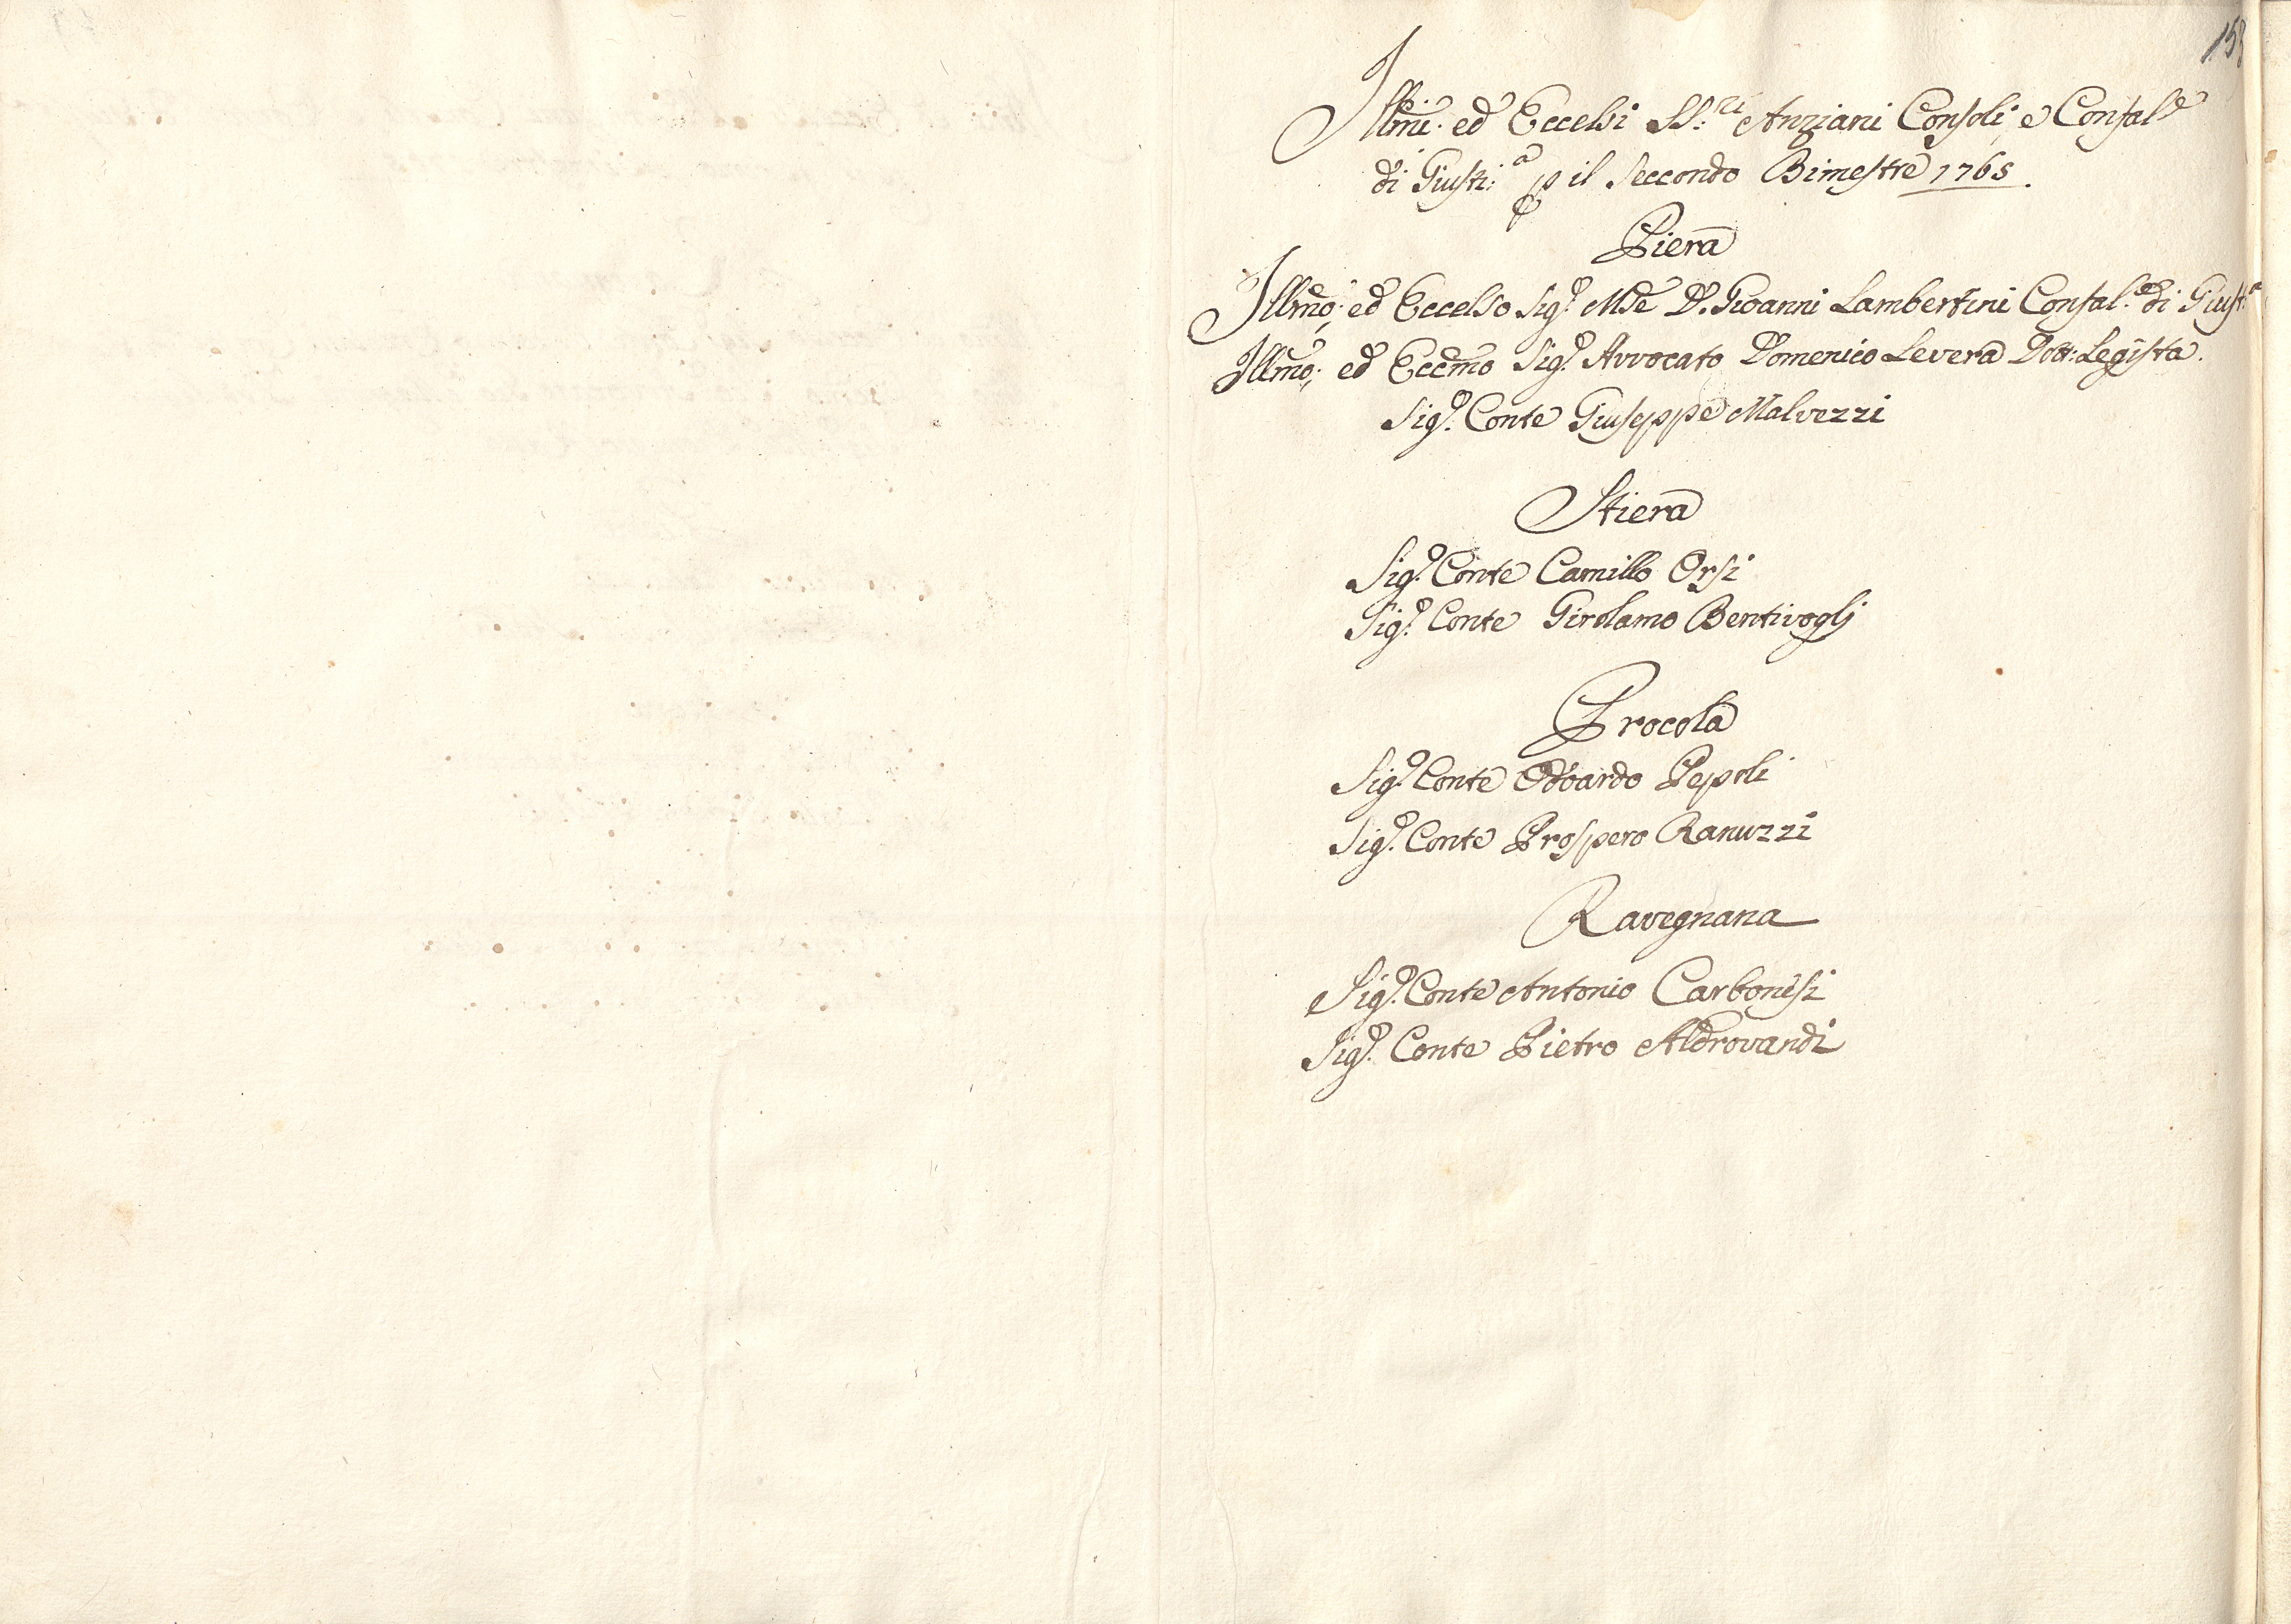 Illmi. ed Eccelsi SS:ri Anziani Consoli, e Confal.e
di Giusti:a p il Seccondo Bimestre 1765.
Piera
Illmo; ed Eccelso Sig.r Mse D. Gioanni Lambertini Confal.e di Giust:a
Illmo; ed Eccmo Sig.r Avvocato Domenico Levera Dott: Legista.
Sig.r Conte Giuseppe Malvezzi
Stiera
Sig.r Conte Camillo Orsi
Sig.r Conte Girolamo Bentivoglj
Procola
Sig.r Conte Odoardo Pepoli
Sig.r Conte Prospero Ranuzzi
Ravegnana
Sig.r Conte Antonio Carbonesi
Sig.r Conte Pietro Aldrovandi